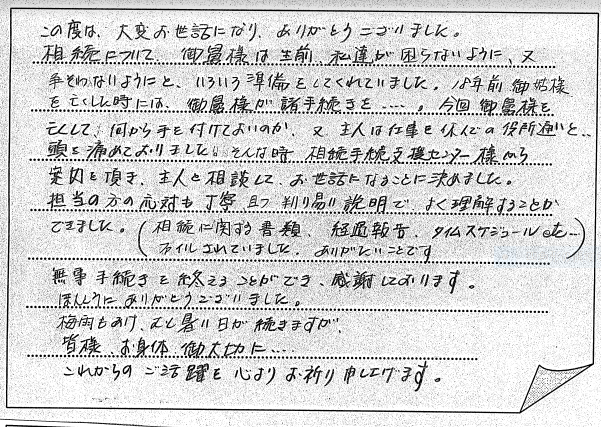 この度は、大変お世話になり、ありがとうございました。
相続について 御舅様は生前、私達が困らないように、又
手をわずらわせないようにと、いろいろ準備をしてくれていました。18年前 御姑様
を亡くした時には、御舅様が諸手続きを……。今回 御舅様を
亡くして、何から手を付けてよいのか、又 主人は仕事を休んでの役所通いと…
頭を痛めておりました。そんな時 相続手続支援センター様から
案内を頂き、主人と相談して、お世話になることに決めました。
担当の方の応対も丁寧且つ判り易い説明で よく理解することが
できました。(相続に関する書類、経過報告、タイムスケジュール etc…
ファイルされていました。ありがたいことです)
無事手続きを終えることができ、感謝しております。
ほんとうにありがとうございました。
梅雨もあけ、むし暑い日が続きますが、
皆様、お身体 御大切に…
これからのご活躍を心よりお祈り申し上げます。